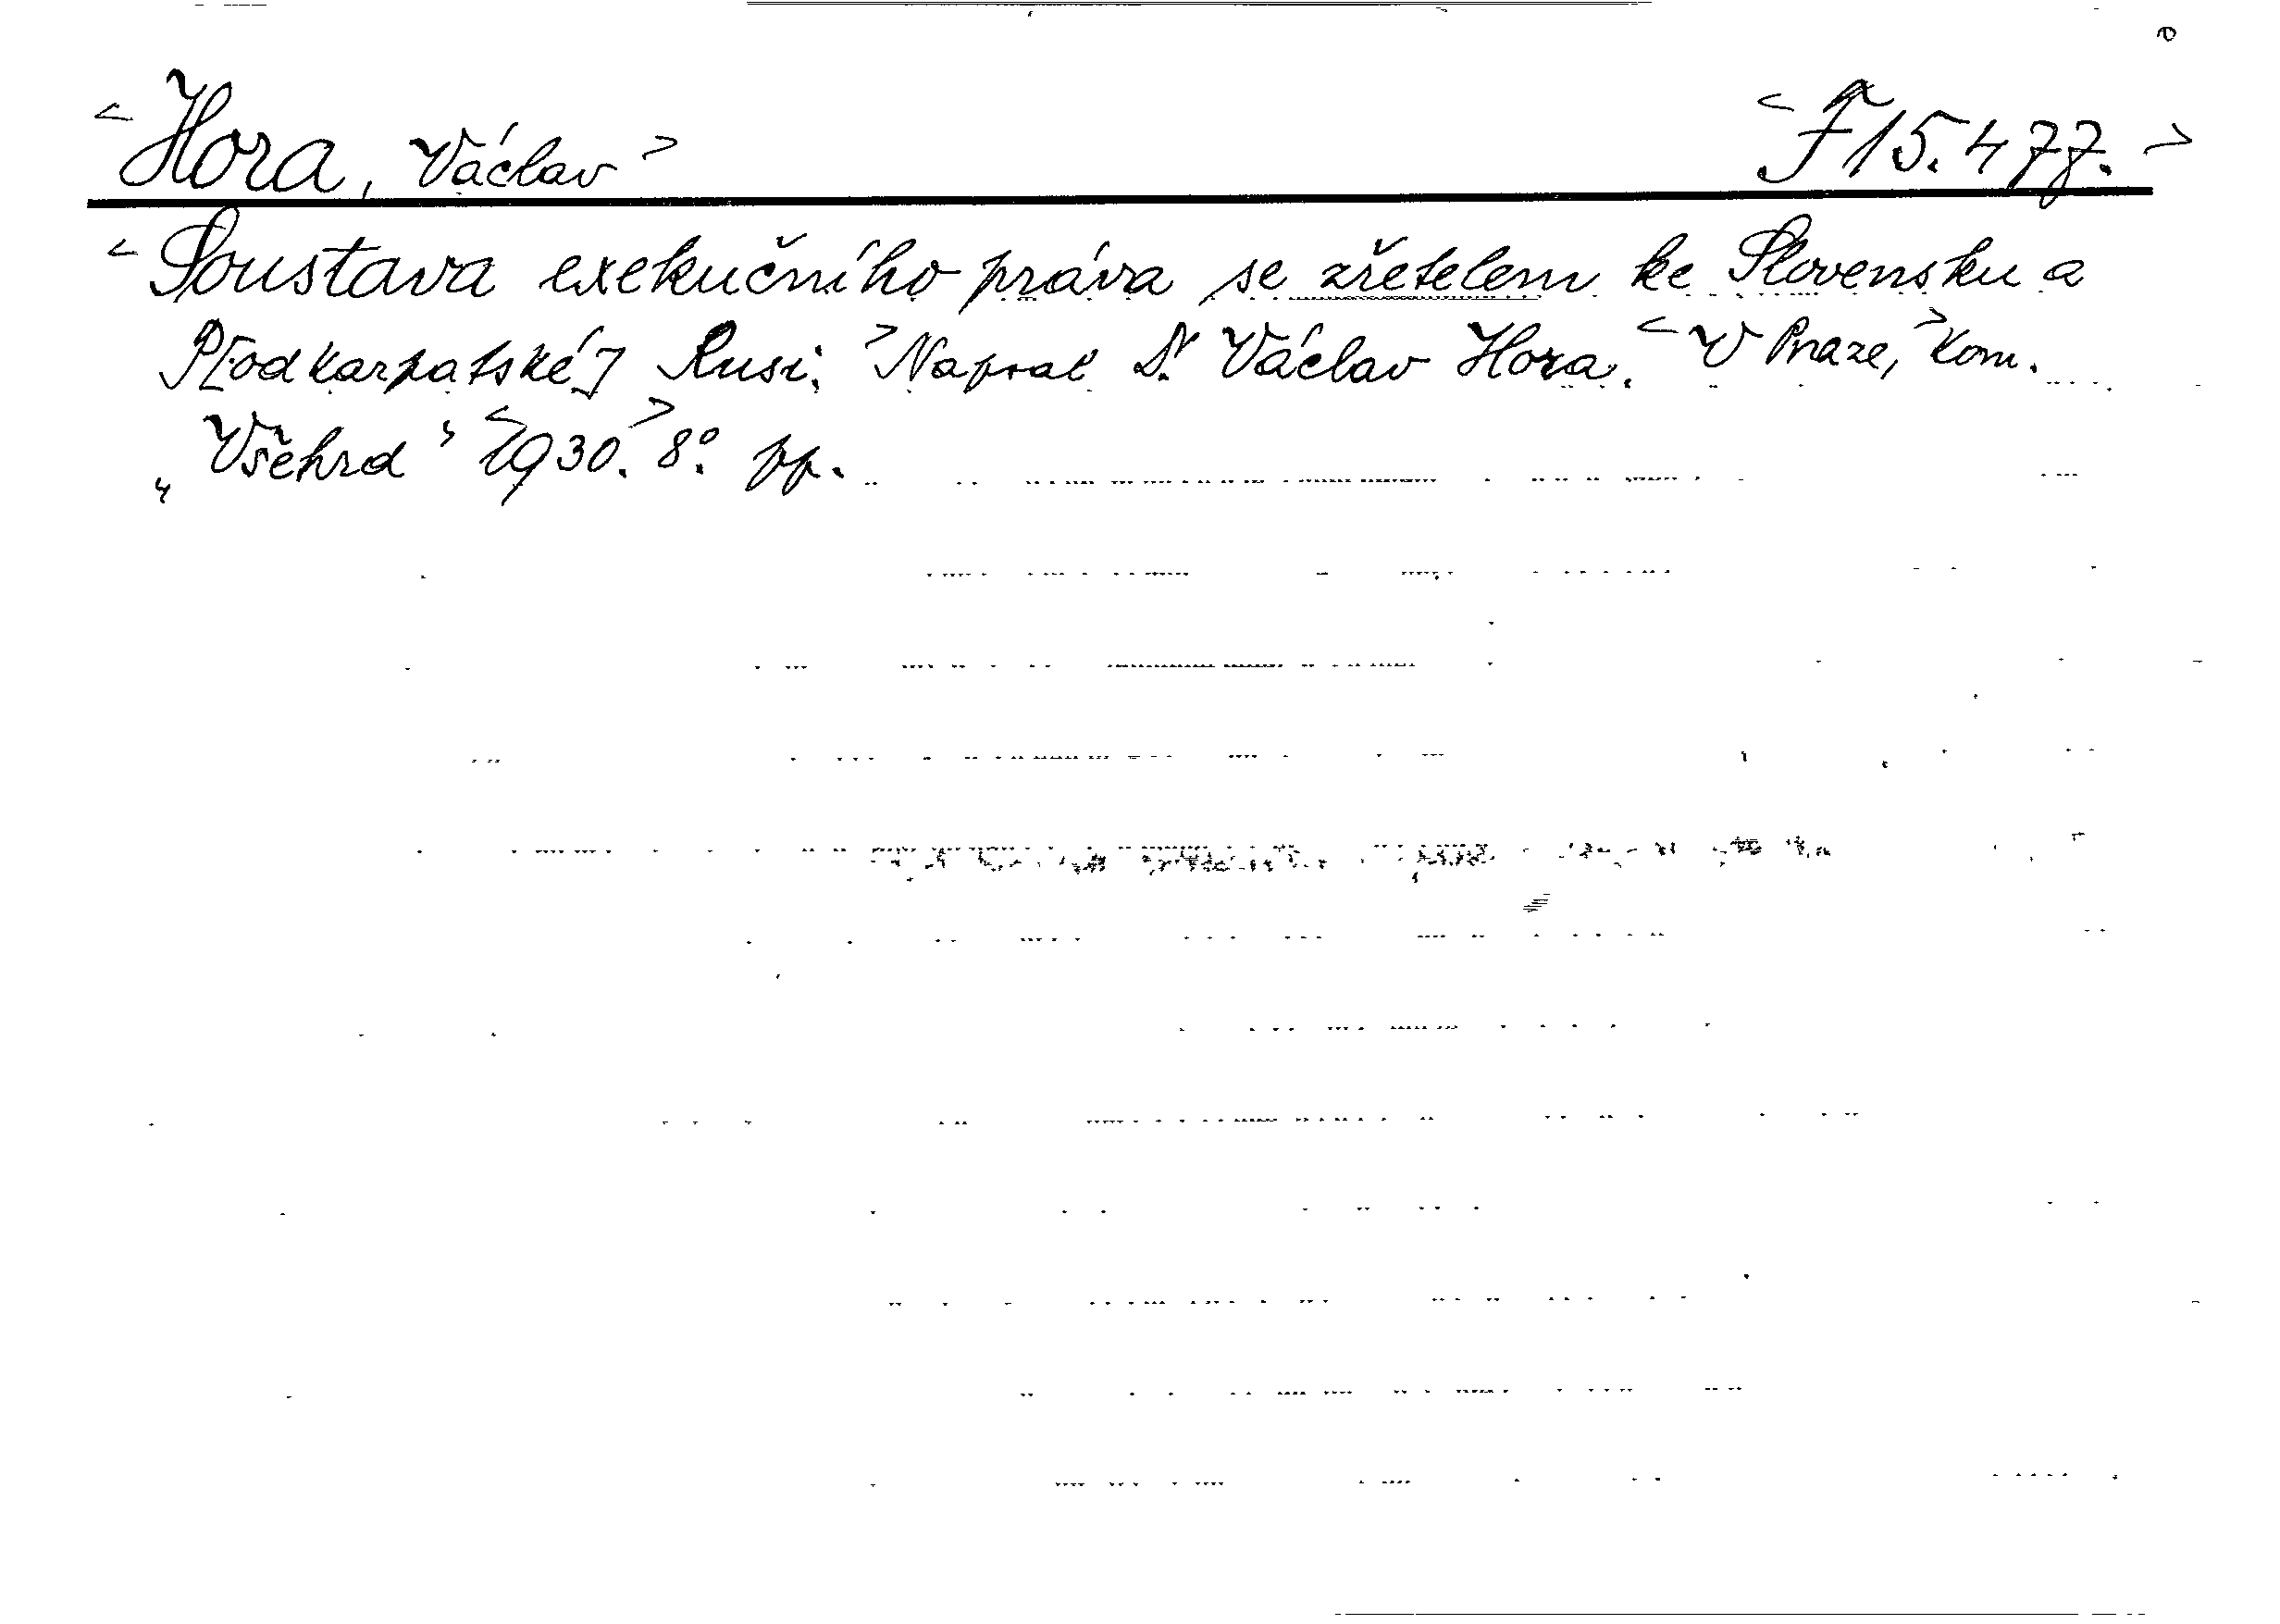 < Hora, Václav > < F 15.477. >
< Soustava exekučního práva se zřetelem ke Slovensku a
P[odkarpatské] Rusi. > Napsal Dr. Václav Hora. < V Praze, > Kom.
„Všehrd“ < 1930. > 8°. pp.